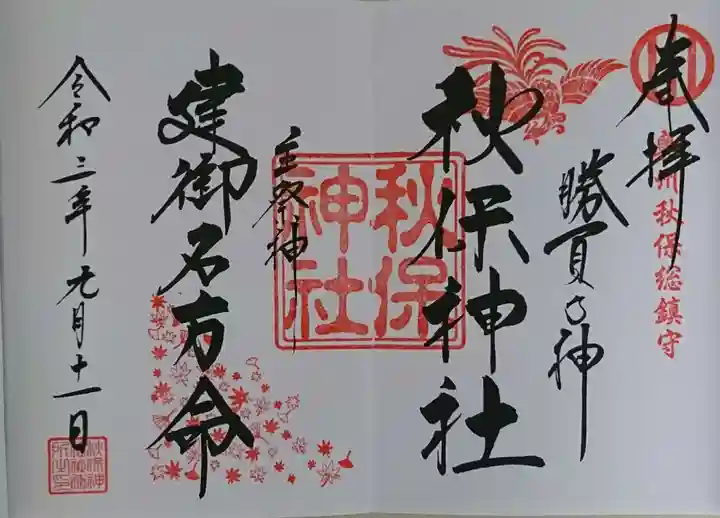 奉拝
奥州秋保総鎮守
勝負の神
秋保神社
秋保
神社
主祭神
建御名方命
令和二年元月十一日